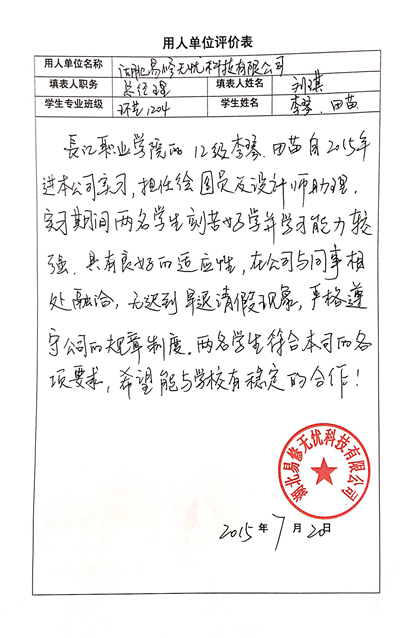 用人单位评价表
用人单位名称 湖北易修无忧科技有限公司
填表人职务 总经理 填表人姓名 刘琪
学生专业班级 环艺1204 学生姓名 李琴、田苗
長江职业学院的12级李琴、田苗自2015年
进本公司实习，担任绘图员及设计师助理，
实习期间两名学生刻苦好学并学习能力较
强，具有良好的适应性，在公司与同事相
处融洽，无迟到早退请假现象，严格遵
守公司的规章制度。两名学生符合本司的各
项要求，希望能与学校有稳定的合作！
湖北易修无忧科技有限公司
2015年7月20日